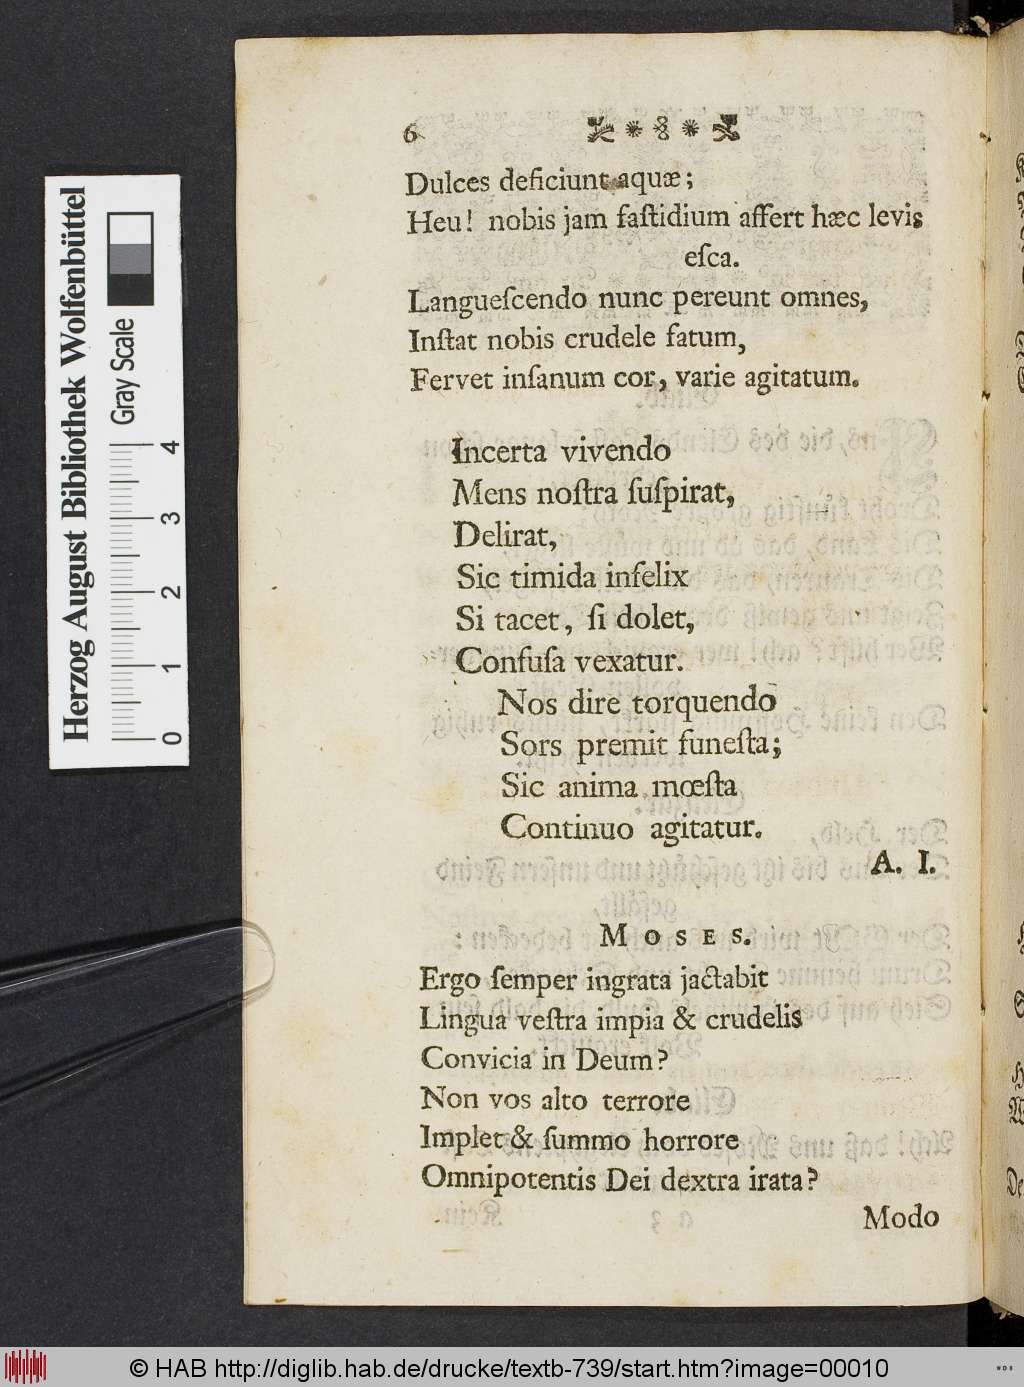 6
Dulces deficiunt aquæ;
Heu! nobis jam faſtidium affert hæc levis
eſca.
Langueſcendo nunc pereunt omnes,
Inſtat nobis crudele fatum,
Fervet inſanum cor, varie agitatum.
Incerta vivendo
Mens noſtra ſuſpirat,
Delirat,
Sic timida infelix
Si tacet, ſi dolet,
Confuſa vexatur.
Nos dire torquendo
Sors premit funeſta;
Sic anima mœſta
Continuo agitatur.
A. I.
MOSES.
Ergo ſemper ingrata jactabit
Lingua veſtra impia & crudelis
Convicia in Deum?
Non vos alto terrore
Implet & ſummo horrore
Omnipotentis Dei dextra irata?
Modo
Herzog August Bibliothek Wolfenbüttel
Gray Scale
0 1 2 3 4
© HAB http://diglib.hab.de/drucke/textb-739/start.htm?image=00010